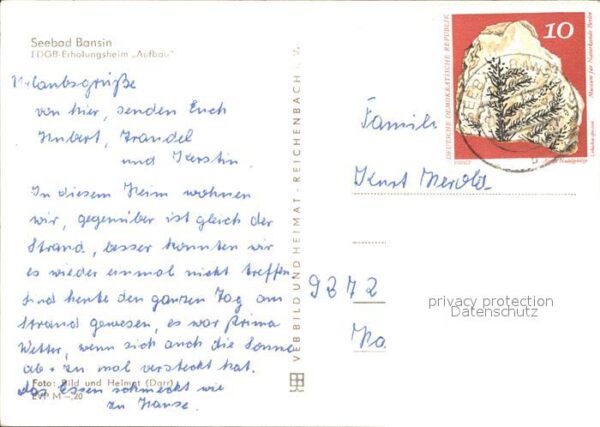 Seebad Bansin
FDGB-Erholungsheim „Aufbau"
Urlaubsgrüße
von hier, senden Euch
Hubert, Traudel
und Kerstin.
In diesem Heim wohnen
wir, gegenüber ist gleich der
Strand, besser konnten wir
es wieder einmal nicht treffen
Sind heute den ganzen Tag am
Strand gewesen, es war prima
Wetter, wenn sich auch die Sonne
ab + zu mal versteckt hat.
das Essen schmeckt wie
zu Hause.
Foto: Bild und Heimat (Darr)
EVP M -,20
VEB BILD UND HEIMAT · REICHENBACH i. V.
DEUTSCHE DEMOKRATISCHE REPUBLIK
10
Museum für Naturkunde Berlin
Familie
Kurt Herold
9372
privacy protection
Datenschutz